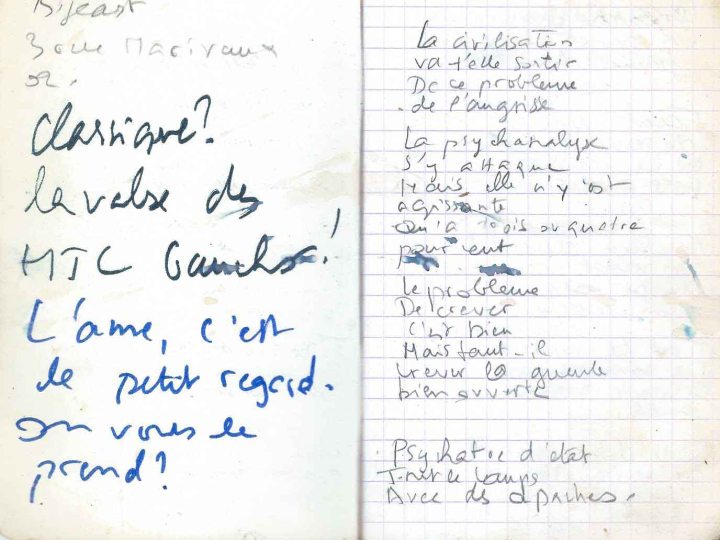 Bifeast
3 rue Marivaux
Classique?
la valse des
MJC Gauchos!
L'ame, c'est
le petit regard.
On vous le
prend?
La civilisation
va t'elle sortir
De ce probleme
de l'angoisse
La psychanalyse
s'y attaque
Mais elle n'y est
agissante
Qu'a trois ou quatre
pour cent
Le probleme
De crever
C'est bien
Mais faut-il
crever la gueule
bien ouverte
Psychatrie d'état
Tout le temps
Avec des apaches.